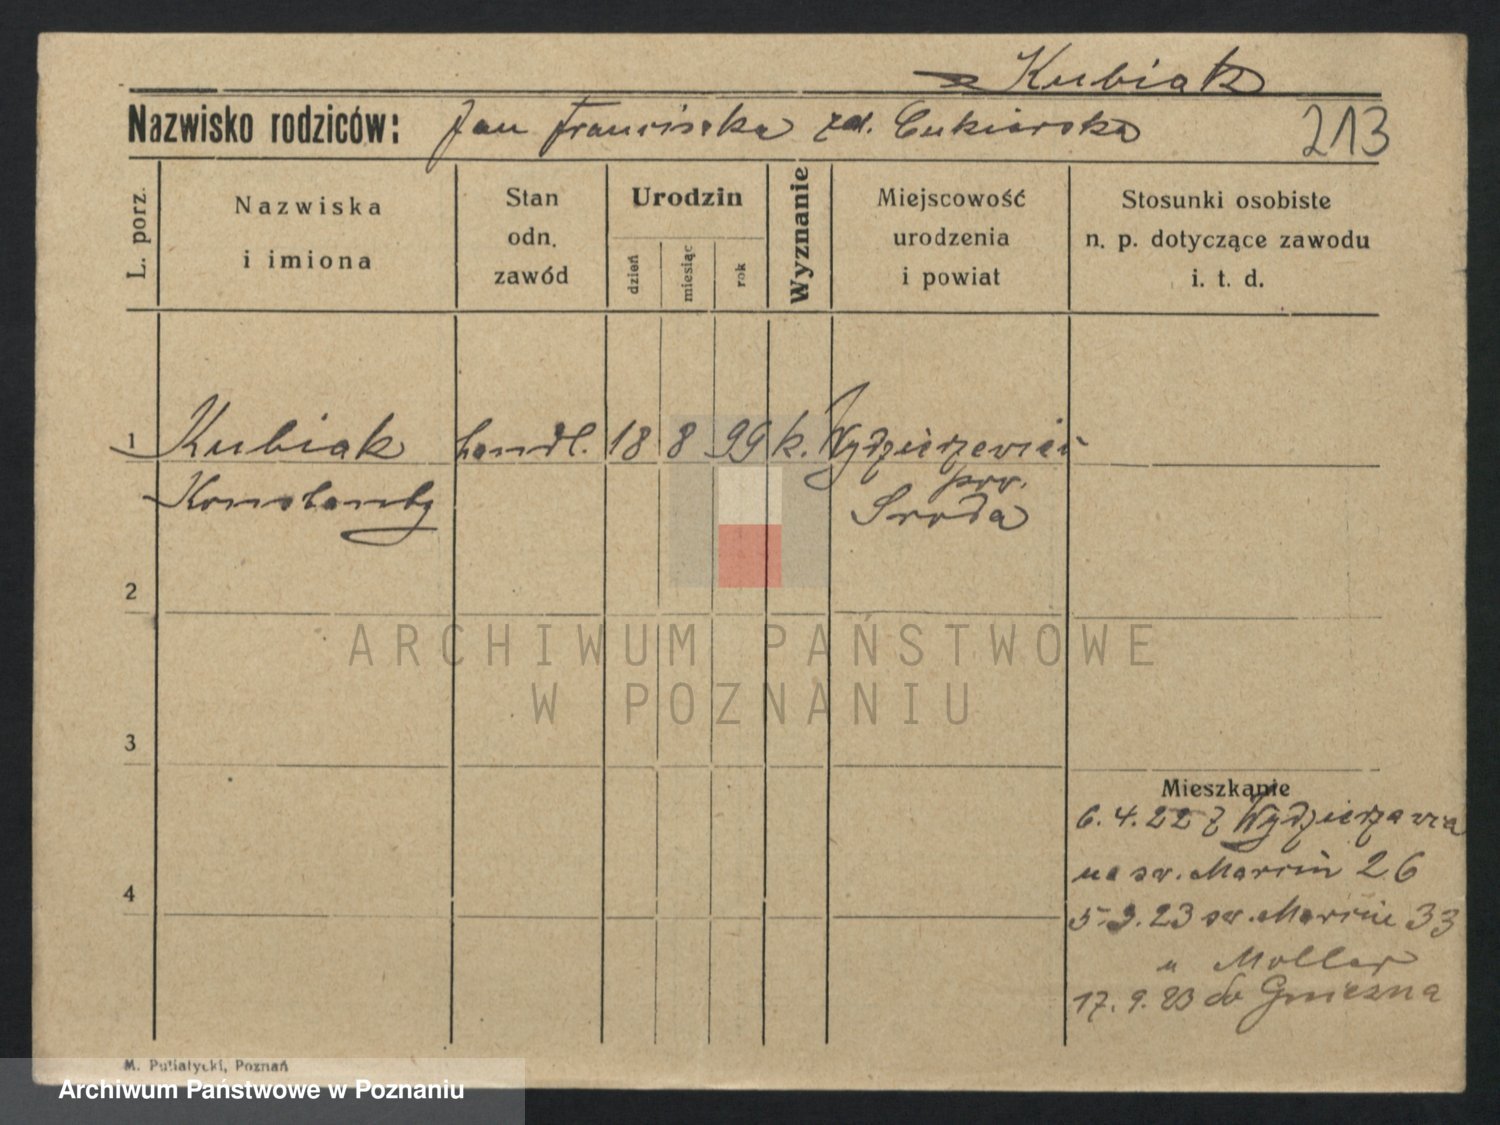 Kubiak
Nazwisko rodziców: Jan Franciszka zd. Cukierska
213
L. porz.
Nazwiska
i imiona
Stan
odn.
zawód
Urodzin
dzień
miesiąc
rok
Wyznanie
Miejscowość
urodzenia
i powiat
Stosunki osobiste
n. p. dotyczące zawodu
i. t. d.
1 Kubiak handl. 18 8 99 k.
Konstanty
pow.
Sroda
2
3
4
Mieszkanie
6.4.22 z Wydzierzewic
na św. Marcin 26
5.9.23 św. Marcin 33
u Moller
17.9.23 do Gniezna
M. Putiatycki, Poznań
ARCHIWUM PAŃSTWOWE
W POZNANIU
Archiwum Państwowe w Poznaniu